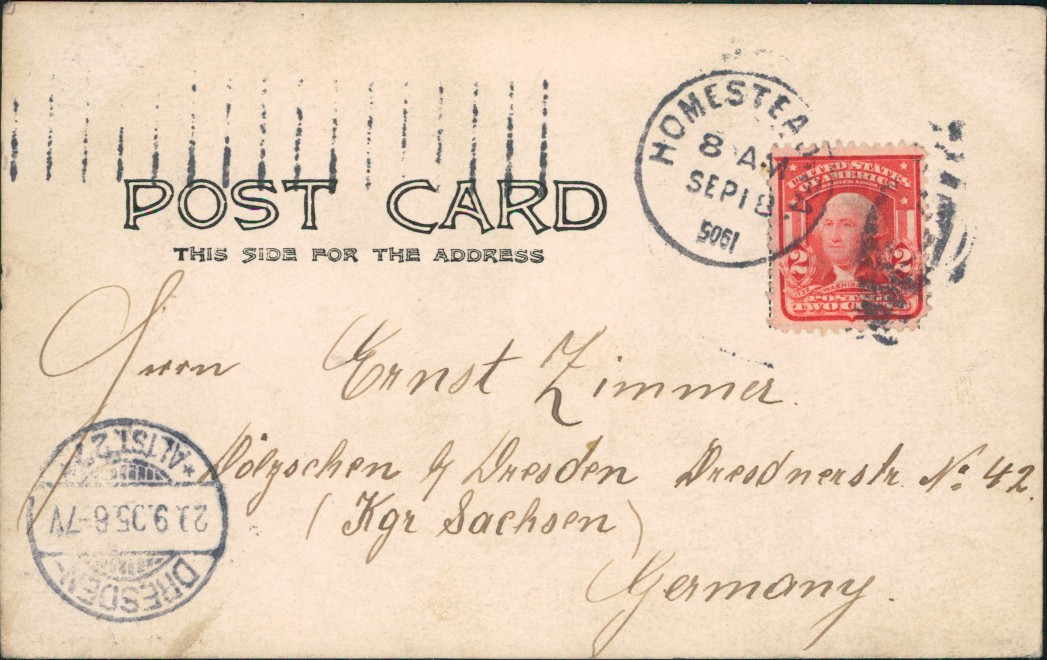 POST CARD
THIS SIDE FOR THE ADDRESS
HOMESTEAD
8 AM
SEP 18
1905
UNITED STATES
OF AMERICA
2 2
POSTAGE
TWO CENTS
Herrn Ernst Zimmer.
Dölzschen b/ Dresden Dresdnerstr. No. 42.
(Kgr Sachsen)
Germany.
DRESDEN-
9.05.6-7V
*ALTST.